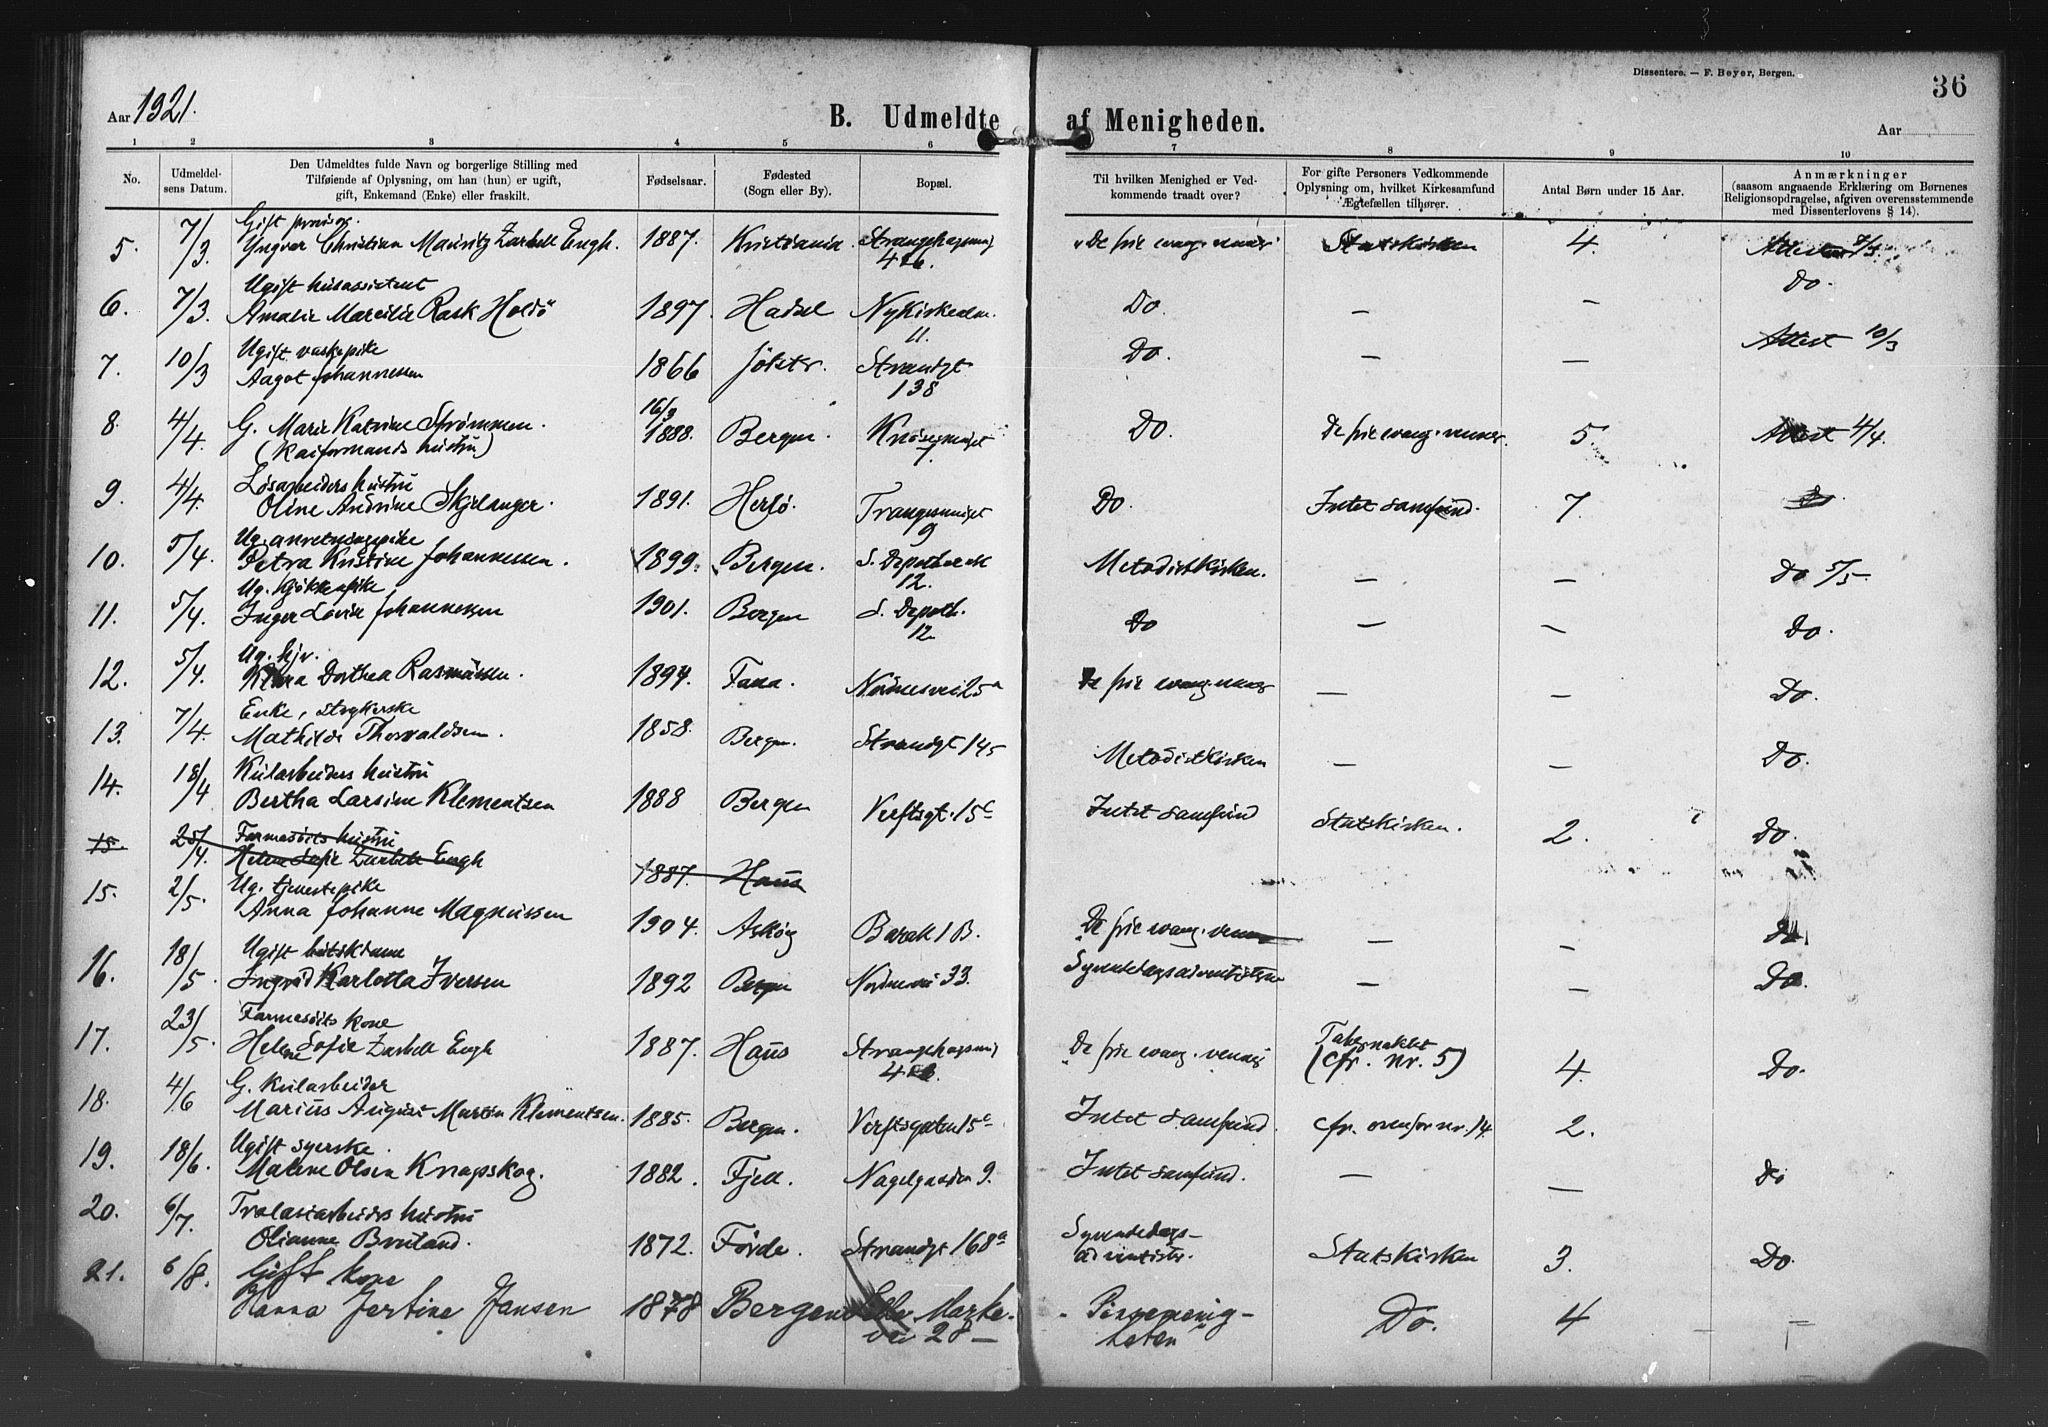 Dissentere. — F. Beyer, Bergen.
36
Aar 1921.
B. Udmeldte af Menigheden.
Aar
1 2 3 4 5 6 7 8 9 10
No.
Udmeldelsens Datum.
Den Udmeldtes fulde Navn og borgerlige Stilling med
Tilføiende af Oplysning, om han (hun) er ugift,
gift, Enkemand (Enke) eller fraskilt.
Fødselsaar.
Fødested
(Sogn eller By).
Bopæl.
Til hvilken Menighed er Ved-
kommende traadt over?
For gifte Personers Vedkommende
Oplysning om, hvilket Kirkesamfund
Ægtefællen tilhører.
Antal Børn under 15 Aar.
Anmærkninger
(saasom angaaende Erklæring om Børnenes
Religionsopdragelse, afgiven overensstemmende
med Dissenterlovens § 14).
Gift
5. 7/3. Yngvar Christian Mauritz Zarbell Engh. 1887. Kristiania "De frie evang. venner" Statskirken 4. Attest 7/3.
Ugift husassistent
6. 7/3. Amalie Marcilie Rask Holdö 1897. Hadsel Nykirkealm. 11. Do. — — Do.
Ugift vaskepike
7. 10/3 Aagot Johannessen 1866 Jölster. Strandgt 138 Do. — — Attest 10/3
8. 4/4. G. Marie Katrine Strømmen. 16/3 1888. Bergen. Knøsesmuget 7. Do. De frie evang. venner. 5. Attest 4/4.
(Kaiformands hustru)
Løsarbeiders hustru
9. 4/4. Oline Andrine Skjelanger. 1891. Herlö. Trangesmuget 9 Do. Intet samfund. 7. Do
Ug. anretningspike
10. 5/4. Petra Kristine Johannessen. 1899. Bergen. S. Depotbræk 12. Metodistkirken. — — Do 5/5.
Ug. kjøkkenpike
11. 5/4. Inger Lovise Johannessen 1901. Bergen S. Depotb. 12. Do — — Do.
Ug. hjv.
12. 5/4. Klara Dorthea Rasmussen. 1894. Fana. Nordnesvei 25a De frie evang. venner — — Do.
Enke, strykerske
13. 7/4. Mathilde Thorvaldsen. 1858. Bergen. Strandgt 145 Metodistkirken — — Do.
Kularbeiders hustru
14. 18/4 Bertha Larsine Klementsen 1888 Bergen Verftsgt. 15c Intet samfund Statskirken. 2. Do.
15. 25/4. hustru
Helene Sofie Zarbell Engh 1887. Haus
Ug. tjenestepike
15. 2/5. Anna Johanne Magnussen 1904. Askøy Barak 1 B. De frie evang. venner — — Do.
Ugift butikdame
16. 18/5. Ingrid Karlotta Iversen 1892 Bergen Nordnesvei 33. Syvendedagsadventisterne — — Do.
kone
17. 23/5. Helene Sofie Zarbell Engh 1887. Haus "De frie evang. venner" Tabernaklet (cfr. nr. 5) 4. Do.
G. Kularbeider
18. 4/6 Marius August Martin Klementsen. 1885. Bergen. Verftsgaten 15c Intet samfund. cfr. ovenfor nr. 14. 2.
Ugift syerske.
19. 18/6. Malene Olsen Knapskog. 1882. Fjell. Nagelgaarden 9. Intet samfund. — — Do
Trelastarbeiders hustru
20. 6/7. Olianne Bruland. 1872. Førde. Strandgt 168a Syvendedags- adventister. Statskirken 3. Do.
21. 6/8. Gift kone
Hanna Jertine Jansen 1878 Bergen Marke- vei 28 — "Pinsemenig- heten" Do. 4 —